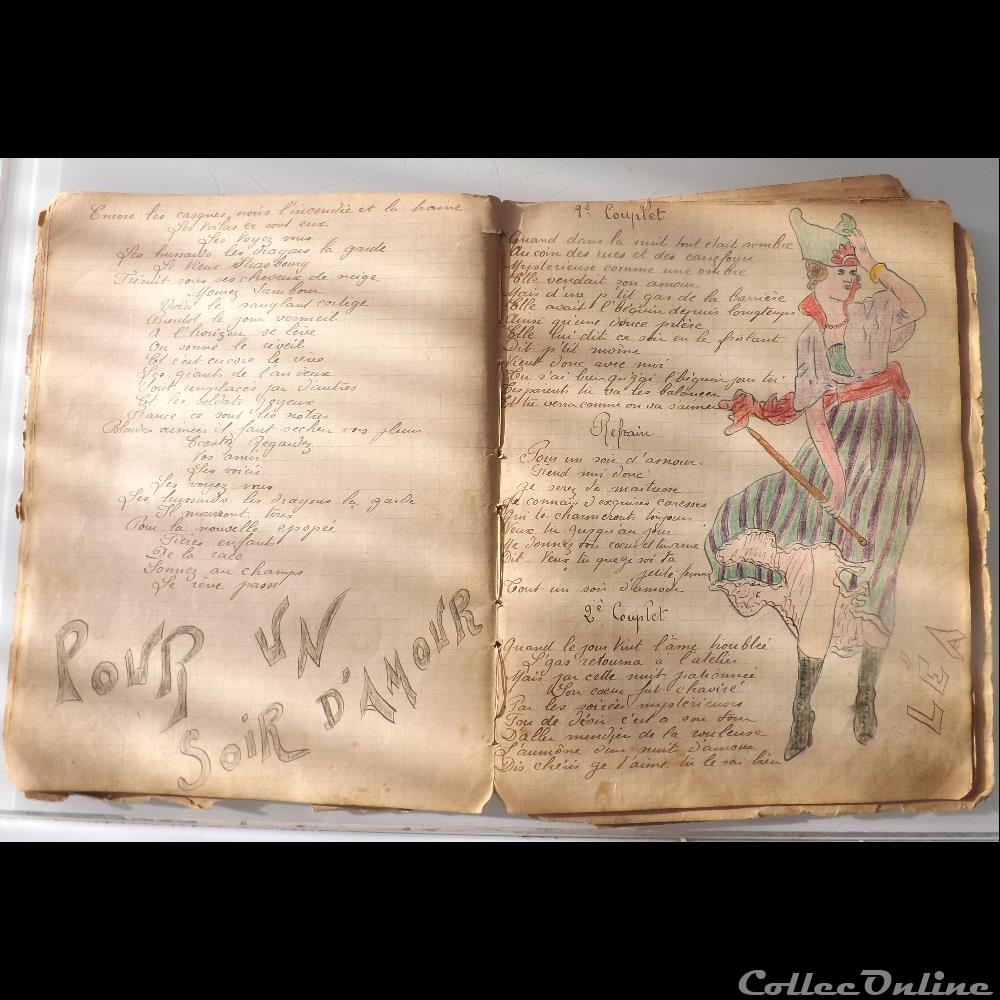 Encore les casques noirs l'incendie et la haine
Les Voilas ce sont eux
Les Voyez vous
Les hussards les dragons la garde
Le Vieux Strasbourg
Frémit sous ses cheveux de neige
Mauses Tambour
Voici le sanglant cortège
Bientôt le jour vermeil
A l'horizon se lève
On sonne le réveil
Et c'est encore le rêve
Les géants de l'an deux
Sont remplacés par d'autres
Et les soldats joyeux
France ce sont les notres
Blondes aimées il faut secher vos pleurs
Ecoutez Regardez
Vos amis
Les voicis
Les voyez vous
Les hussards les dragons la garde
Il mourront tous
Pour la nouvelle épopée
Fières enfants
De la race
Sonnez au champs
Le rêve passe
POUR UN
SOIR D'AMOUR
1e Couplet
Quand dans la nuit tout était sombre
Au coin des rues et des carrefours
Mysterieuse comme une ombre
Elle vendait son amour
Mais d'un p'tit gas de la barrière
Elle avait l'béguin depuis longtemps
Ainsi qu'une douce prière
Elle lui dit ce soir en le frolant
Dit p'tit môme
Vient donc avec moi
Tu s'ai bien qu'j'ai l'béguin pour toi
Tes parents tu va les balancer
Et tu verra comme on va s'aimer
Refrain
Pour un soir d'amour
Prend moi donc
Je serez ta maitresse
Je connais d'exquises caresses
Qui te charmeront toujour
Veux tu jusqu'au jour
Me donner ton coeur et ton ame
Dit Veux tu que ge soi ta
petite femme
Tout un soir d'amour
2e Couplet
Quand le jour Vint l'âme troublée
L'gas retourna a l'atelier
Mais par cette nuit passionnée
Son coeur fut chaviré
Par les soirées mystérieuses
Fou de désir c'est a son tour
D'aller mendier de la rouleuse
L'aumône d'un nuit d'amour
Dis chéris ge t'aime tu le sai bien
LÉA
CollecOnline